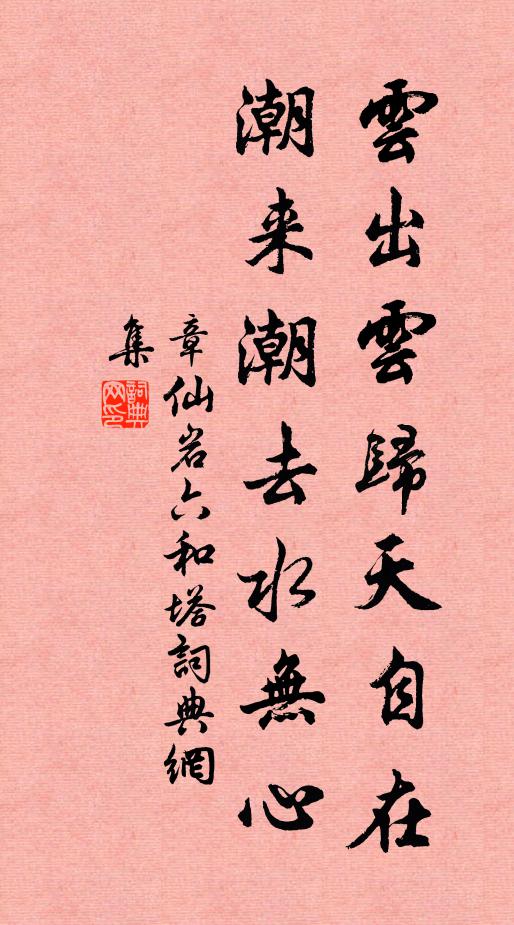 雲出雲歸天自在
潮来潮去水無心
章仙岩六和塔詞典網
集
詞典
网印